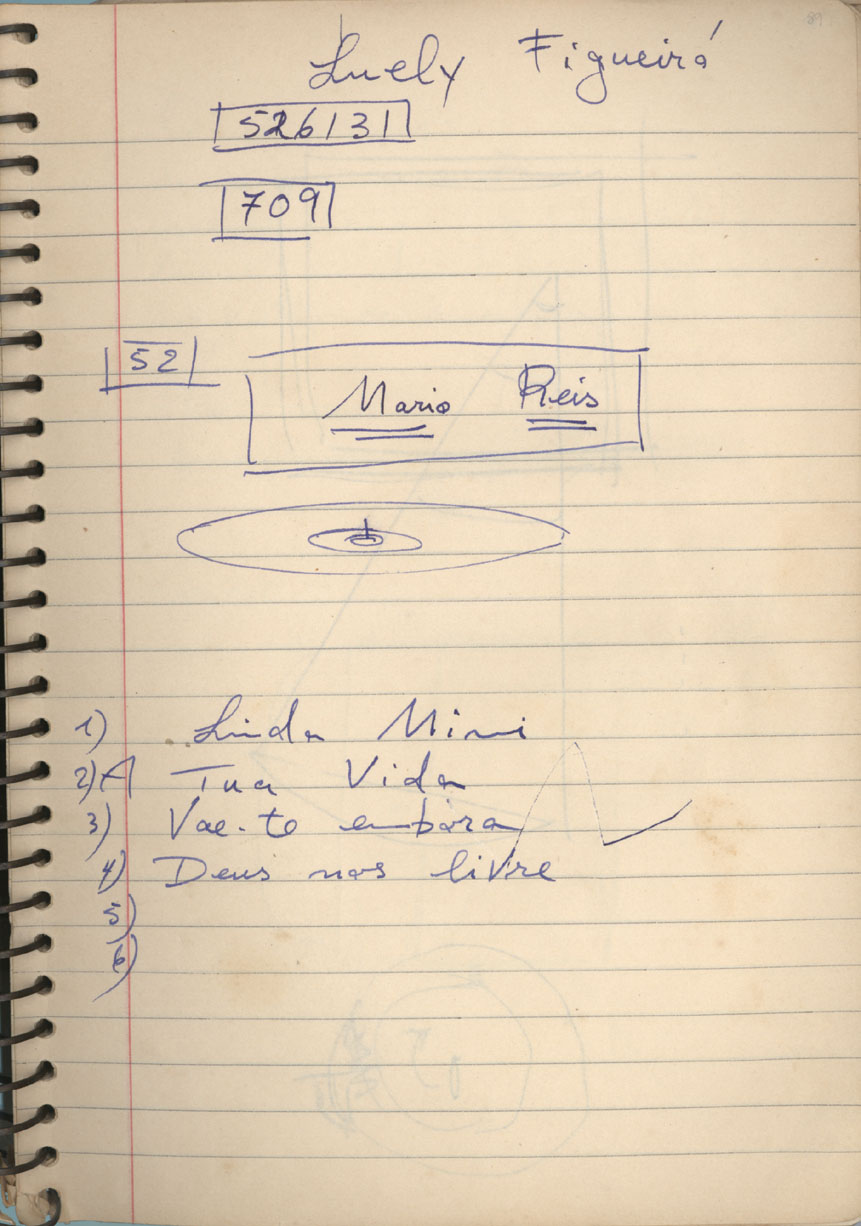 Luely Figueiró
526131
709
52
Mario Reis
1) Linda Mimi
2) A Tua Vida
3) Vae-te embóra
4) Deus nos livre
5)
6)